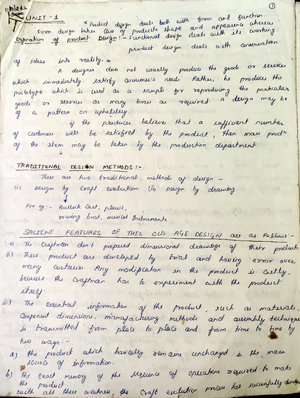 UNIT - 1
* Product design deals both with form and function
Form design takes care of product's shape and appearance whereas
Definition of product Design :- Functional design deals with its working.
product design deals with conversion
of ideas into reality.
A designer does not usually produce the goods or services
which immediately satisfy consumer's needs. Rather, he produces the
prototype which is used as a sample for reproducing the particular
goods or services as many times as required. A design may be
of a pattern on upholstery
if the producer believe that a sufficient number
of customer will be satisfied by the product, then mass prodn
of the item may be taken by the production department
TRADITIONAL DESIGN METHODS :-
There are two traditional methods of design -
(i) Design by Craft evolution (ii) Design by drawing.
For eg :- Bullock Cart, plough,
rowing boat, musical Instruments
SALIENT FEATURES OF THIS OLD AGE DESIGN are as follows -
i) The craftman don't prepared dimensional drawings of their products
ii) These product are developed by trial and having error over
many centuries. Any modification in the product is costly.
because the craftman has to experiment with the product
itself.
iii) The essential information of the product such as materials
component dimensions, manufacturing methods and assembly techniques
is transmitted from place to place and from time to time by
two ways :-
a) The product which basically remains unchanged is the main
source of information
b) The exact memory of the sequence of operation required to make
the product
with all these weakness, the Craft evolution process has successfully